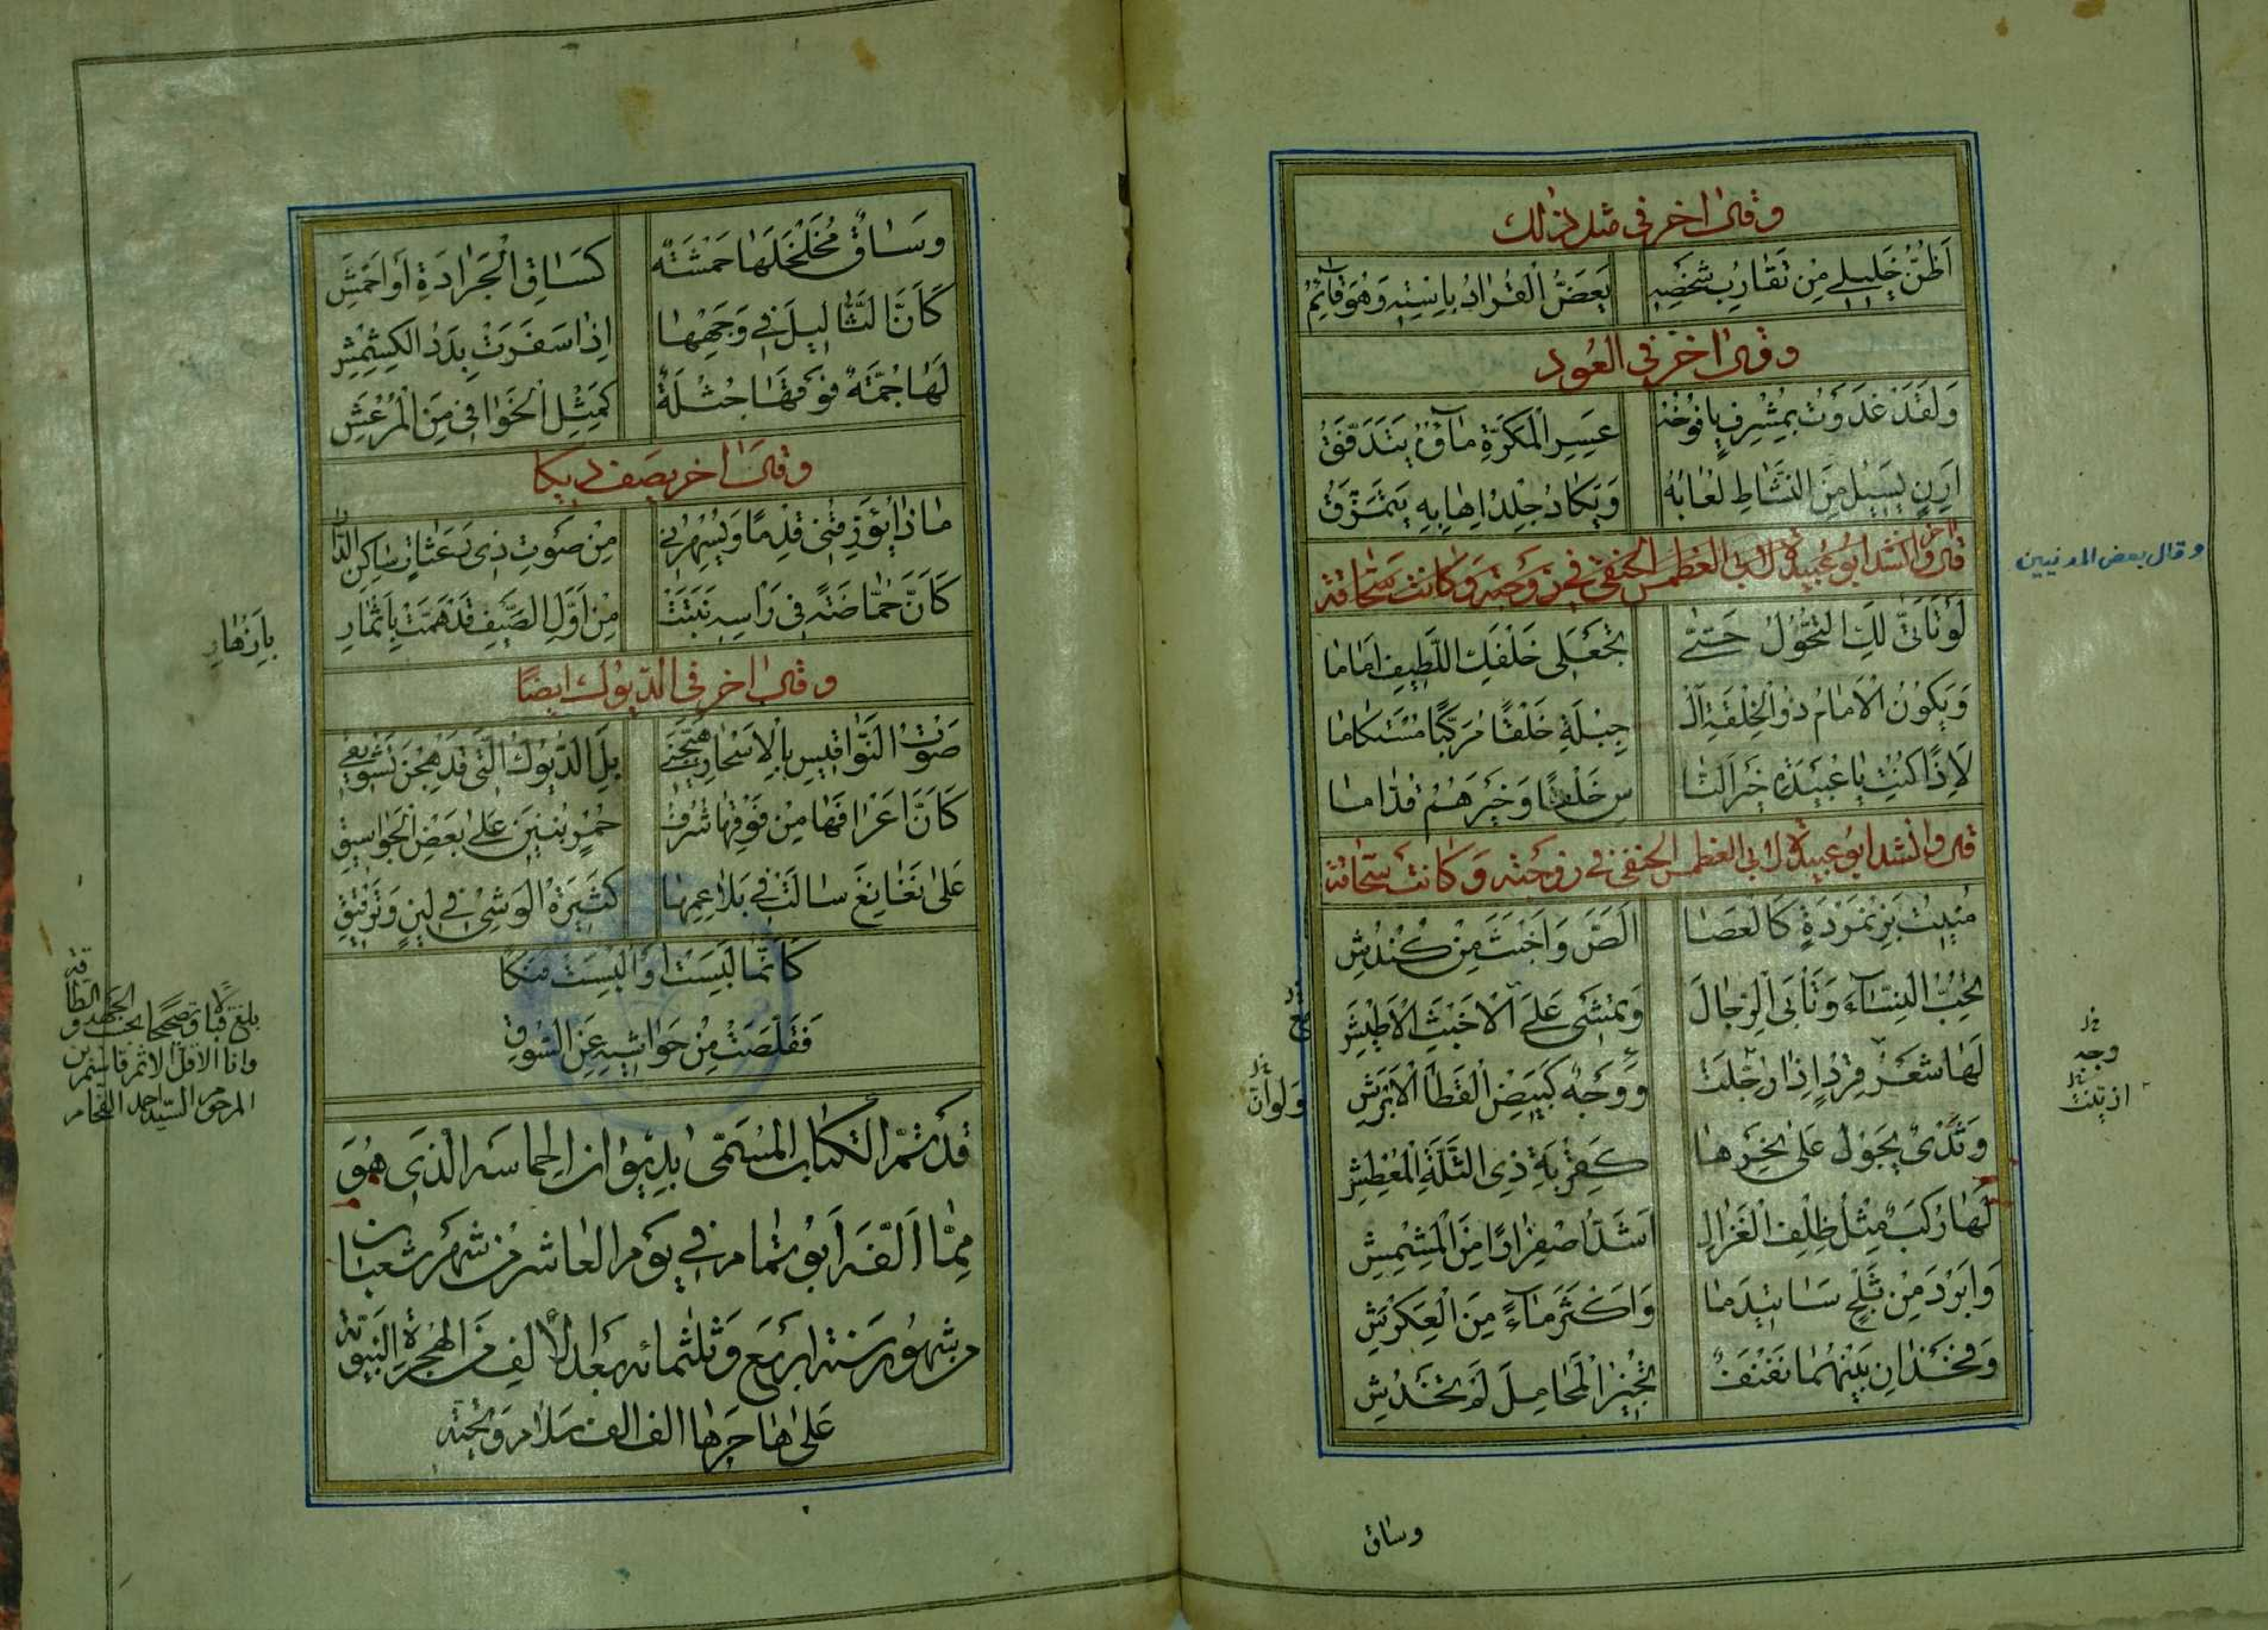 وقال اخر في مثل ذلك
اَظُنُّ خَلِيلِي مِنْ تَقَارُبِ شَخْصِهِ يَعَضُّ الْقُرَادُ بِاِسْتِهِ وَهُوَ قَائِمُ
وقال اخر في العود
وَلَقَدْ غَدَوْتُ بِمُشْرِفٍ يَافُوخُهُ عَسِيرِ الْمَكَرَّةِ مَاؤُهُ يَتَدَفَّقُ
اَرِنٍ يَسِيلُ مِنَ النَّشَاطِ لُعَابُهُ وَيَكَادُ جِلْدُ اِهَابِهِ يَتَمَزَّقُ
قال وانشد ابو عبيدة لابي الغطمس الحنفي في زوجته وكانت سحاقة
وقال بعض المدنيين
لَوْ تَأَتَّى لَكِ التَّحَوُّلُ حَتّٰى تَجْعَلِي خَلْفَكِ اللَّطِيفَ اَمَامَا
وَيَكُونُ الْاَمَامُ ذُو الْخِلْقَةِ الْـ جِبْلَةِ خَلْفًا مُرَكَّبًا مُسْتَكَامَا
لَاِذًا كُنْتِ يَا عُبَيْدَةُ خَيْرَ النَّا سِ خَلْفًا وَخَيْرَهُمْ قُدَّامَا
قال وانشد ابو عبيدة لابي الغطمس الحنفي في زوجته وكانت سحاقة
مُنِيتُ بِزَنْمَرْدَةٍ كَالْعَصَا اَلَصَّ وَاَخْبَثَ مِنْ كُنْدُشِ
تُحِبُّ النِّسَآءَ وَتَأْبَى الرِّجَالَ وَتَمْشِي عَلَى الْاَخْبَثِ الْاَطْيَشِ
لَهَا شَعْرُ قِرْدٍ اِذَا رُجِّلَتْ وَوَجْهٌ كَبَيْضِ الْقَطَا الْاَبْرَشِ
وجه
ازينت
وَثَدْيٌ يَجُولُ عَلَى نَحْرِهَا كَقِرْبَةِ ذِي الثَّلَّةِ الْمُعْطِشِ
لَهَا رَكَبٌ مِثْلُ ظِلْفِ الْغَزَالِ اَشَدُّ اصْفِرَارًا مِنَ الْمِشْمِشِ
وَاَبْرَدُ مِنْ ثَلْجِ سَاتِيدَمَا وَاَكْثَرُ مَآءً مِنَ الْعِكْرِشِ
وَفَخْذَانِ بَيْنَهُمَا نَفْنَفٌ تُجِيزُ الْمَحَامِلَ لَمْ تَخْدُشِ
وساق
وَسَاقٌ مُخَلْخَلُهَا حَمْشَةٌ كَسَاقِ الْجَرَادَةِ اَوْ اَحْمَشُ
كَاَنَّ الثَّآلِيلَ فِي وَجْهِهَا اِذَا سَفَرَتْ بِدَدُ الْكِشْمِشِ
لَهَا جُمَّةٌ فَوْقَهَا جَثْلَةٌ كَمِثْلِ الْخَوَافِي مِنَ الْمُرْعَشِ
وقال اخر يصف ديكا
مَاذَا يُؤَرِّقُنِي قِدْمًا وَيُسْهِرُنِي مِنْ صَوْتِ ذِي رَعَثَاتٍ سَاكِنِ الدَّارِ
كَاَنَّ حُمَّاضَةً فِي رَاْسِهِ نَبَتَتْ مِنْ اَوَّلِ الصَّيْفِ قَدْ هَمَّتْ بِاَثْمَارِ
بازهار
وقال اخر في الديوك ايضا
صَوْتُ النَّوَاقِيسِ بِالْاَسْحَارِ هَيَّجَنِي بَلِ الدُّيُوكُ الَّتِي قَدْ هِجْنَ تَشْوِيقِي
كَاَنَّ اَعْرَافَهَا مِنْ فَوْقِهَا شُرَفٌ حُمْرٌ بُنِينَ عَلَى بَعْضِ الْجَوَاسِيقِ
عَلَى نَغَانِغَ سَالَتْ فِي بَلَاعِمِهَا كَثِيرَةُ الْوَشْيِ فِي لِينٍ وَتَرْقِيقِ
كَاَنَّمَا لَبِسَتْ اَوْ اُلْبِسَتْ فَنَكًا
فَقَلَّصَتْ مِنْ حَوَاشِيهِ عَنِ السُّوقِ
قَدْ تَمَّ الْكِتَابُ الْمُسَمّٰى بِدِيوَانِ الْحِمَاسَه الَّذِي هُوَ
مِمَّا اَلَّفَه اَبُو تَمَّام فِي يَوْمِ الْعَاشِرِ مِنْ شَهْرِ شَعْبَان
مِن شُهُورِ سَنَة اَرْبَع وَثَلٰثمائه بَعْدَ الْاَلفِ مِنَ الْهِجْرَةِ النَّبَوِيَّة
عَلٰى هَاجِرِهَا الف الف سَلَام وَتَحِيَّة
بلغ قبالا وتصحيحا بحسب الجهد والطاقة
وانا الاقل
المرحوم السيد احمد الفحام